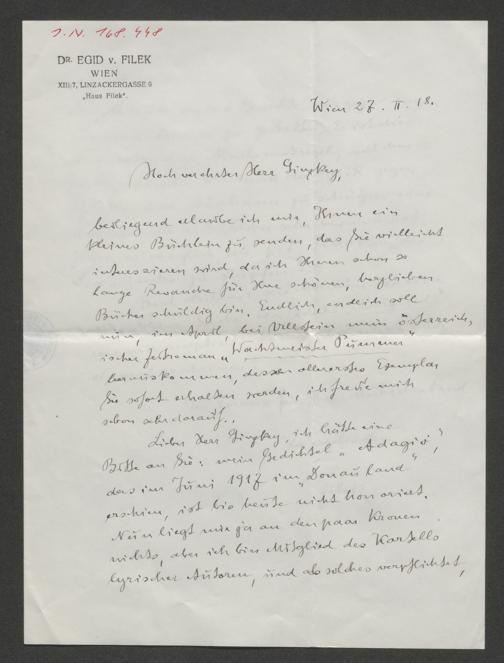 I. N. 168.448
DR. EGID v. FILEK
WIEN
XIII/7, LINZACKERGASSE 9
„Haus Filek“.
Wien 27. II. 18.
Hochverehrter Herr Ginzkey,
beiliegend erlaube ich mir, Ihnen ein
kleines Büchlein zu senden, das Sie vielleicht
interessieren wird, da ich Ihnen schon so
lange Revanche für Ihre schönen, herzlieben
Bücher schuldig bin. Endlich, endlich soll
nun, im April, bei Ullstein mein österreich-
ischer Zeitroman „Wachtmeister Pummer“
herauskommen, dessen allererstes Exemplar
Sie sofort erhalten werden, ich freue mich
schon sehr darauf.
Lieber Herr Ginzkey, ich hätte eine
Bitte an Sie: mein Gedichtel „Adagio“,
das im Juni 1917 im „Donauland“
erschien, ist bis heute nicht honoriert.
Nun liegt mir ja an den paar Kronen
nichts, aber ich bin Mitglied des Kartells
lyrischer Autoren, und als solches verpflichtet,